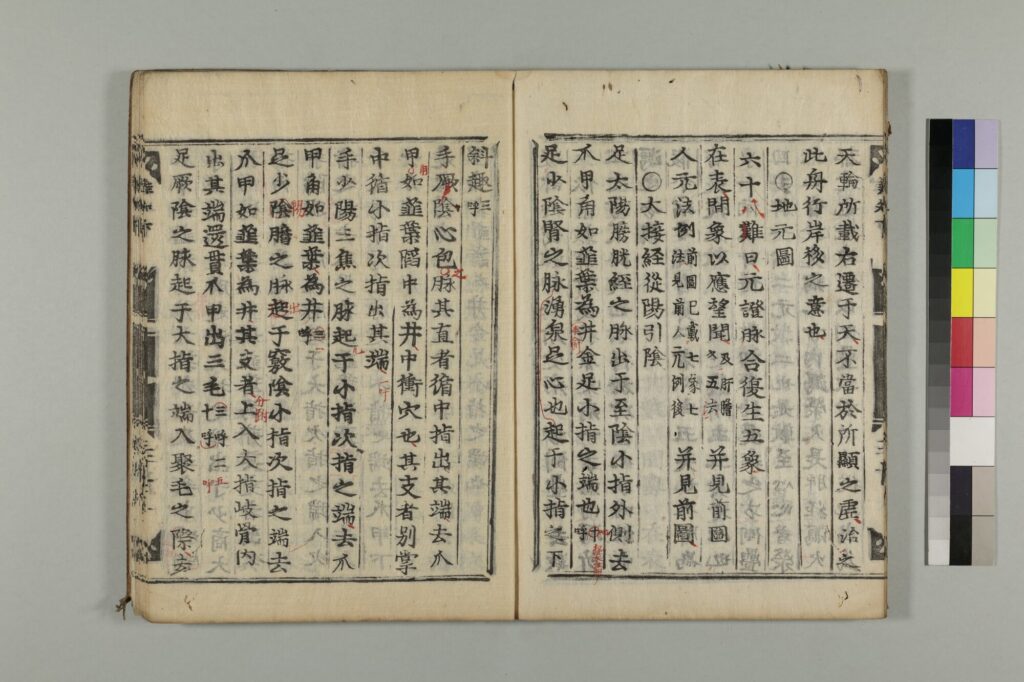 天輪所載右遷于天不當於所顯之處治之
此舟行岸移之意也
〇地元圖
六十八難曰元證脉合復生五象
在表間象以應望聞及肝膽五六并見前圖
人元法例前圖已載七象七法見前人元例後并見前圖
〇大接経從陽引陰
足太陽膀胱経之脉出于至陰小指外側去
爪甲角如韮葉為井金足小指之端也
足少陰腎之脉湧泉足心也起于小指之下
斜趣三呼
手厥陰心包脉其直者循中指出其端去爪
甲如韮葉陷中為井中衝穴也其支者别掌
中循小指次指出其端
手少陽三焦之脉起于小指次指之端去爪
甲角如韮葉為井
足少陰膽之脉起于竅陰小指次指之端去
爪甲如韮葉為井其支者上入大指岐骨内
出其端還貫爪甲出三毛
足厥陰之脉起于大指之端入聚毛之際去